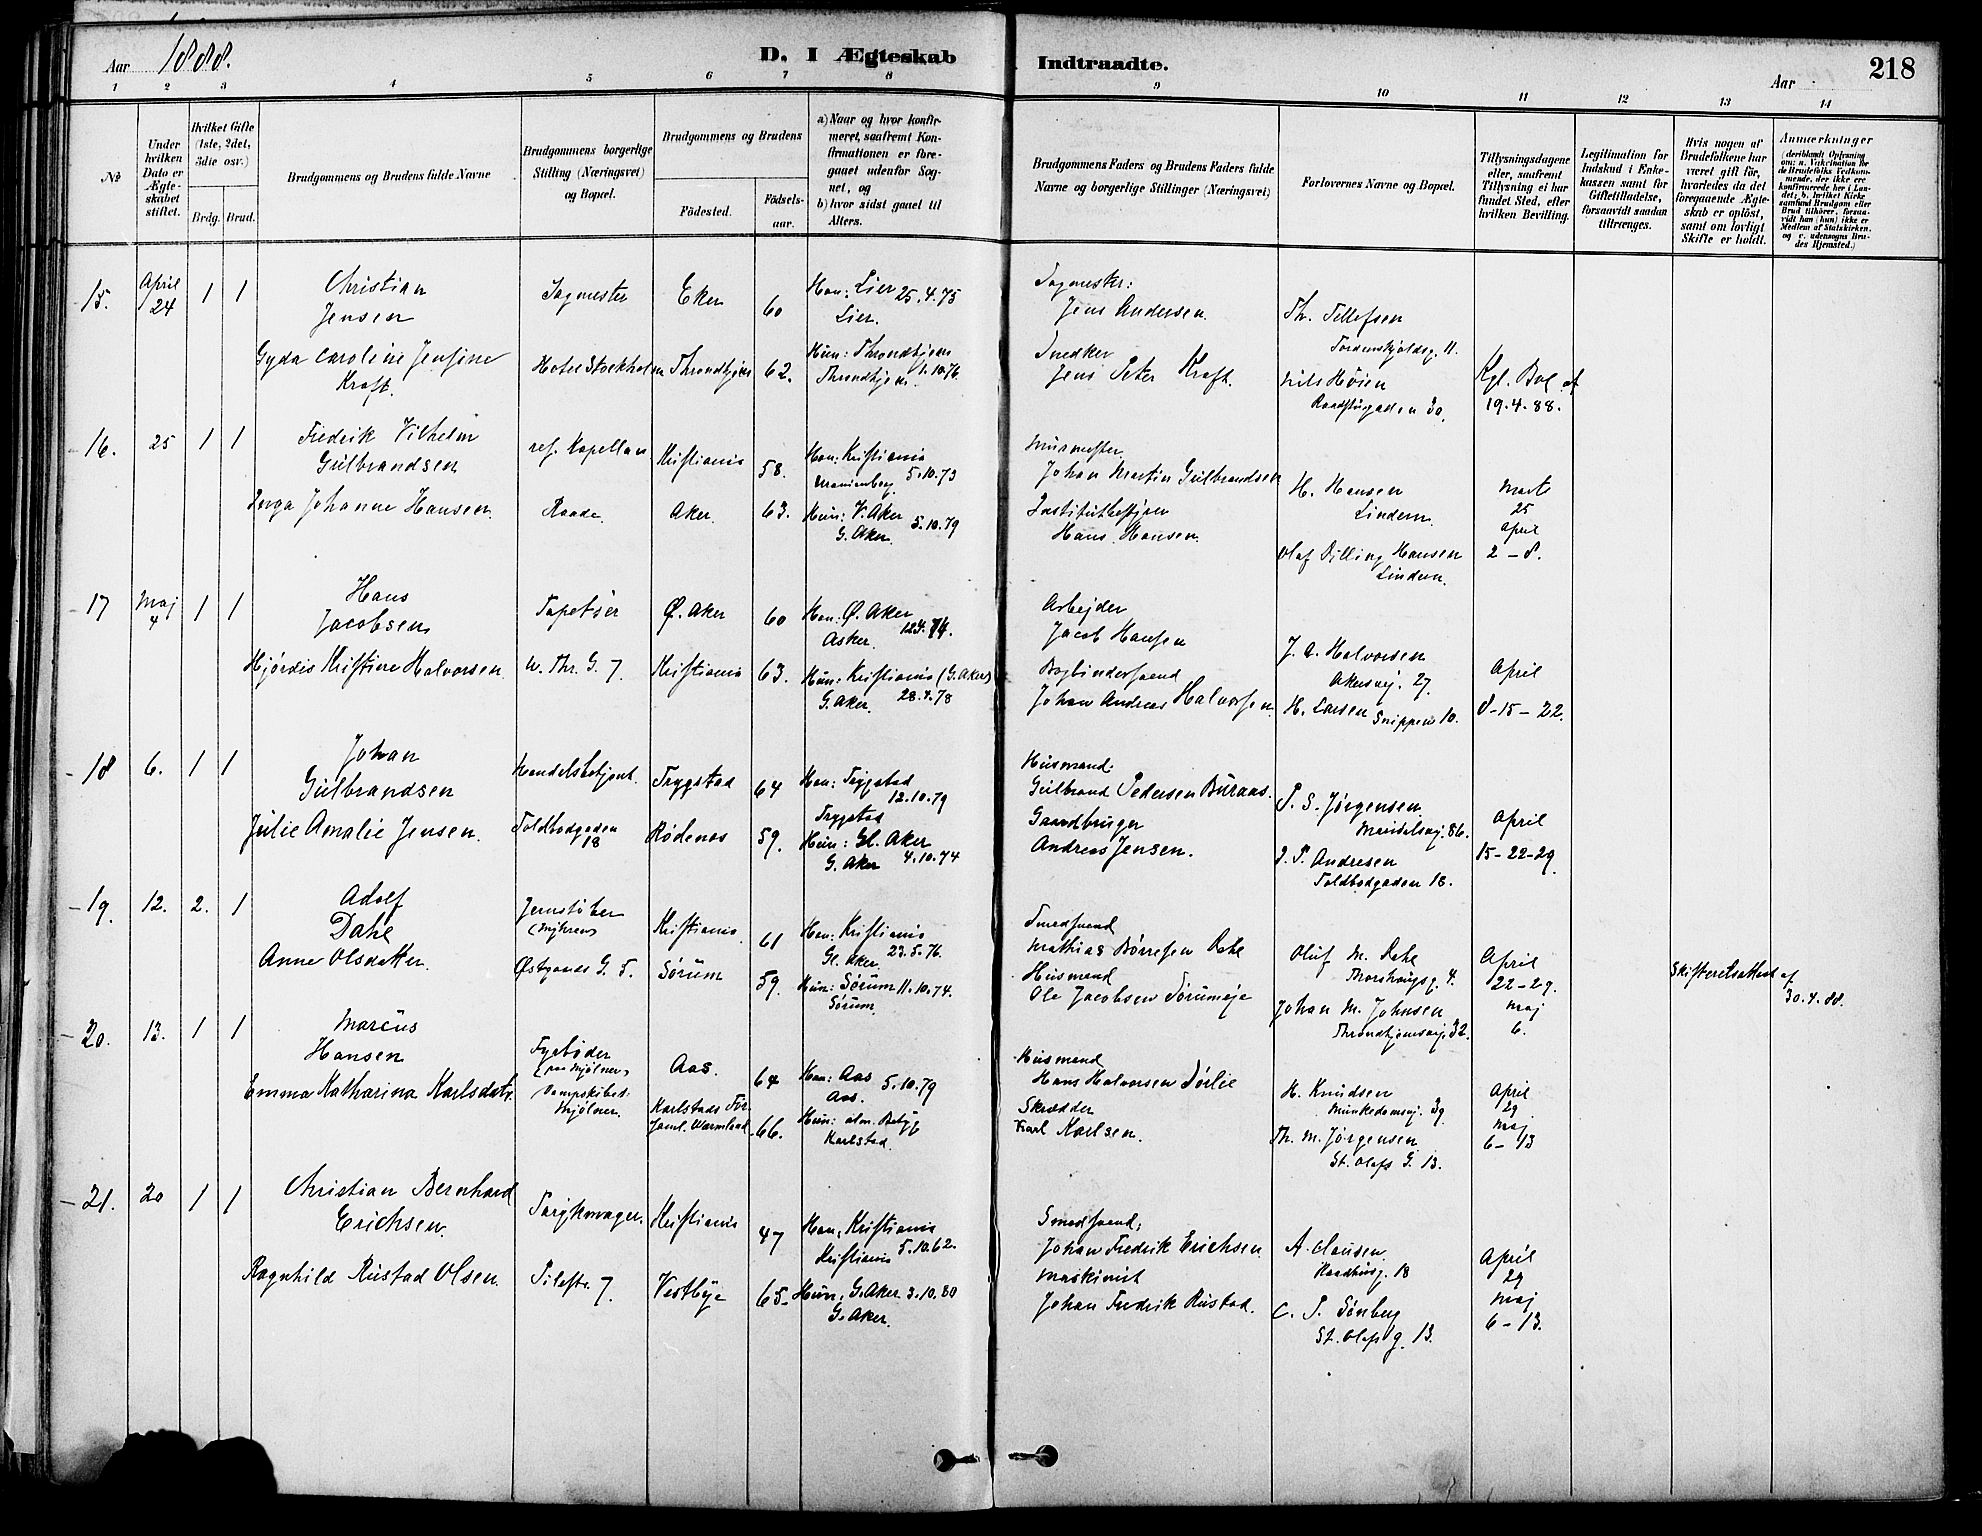 Aar 1888.
D. I Ægteskab
Indtraadte.
Aar
218
1 2 3 4 5 6 7 8 9 10 11 12 13 14
No
Under hvilken Dato er Ægteskabet stiftet.
Hvilket Gifte (1ste, 2det, 3die osv.)
Brdg. Brud.
Brudgommens og Brudens fulde Navne
Brudgommens borgerlige Stilling (Næringsvei) og Bopæl.
Brudgommens og Brudens
Födested.
Födselsaar.
a) Naar og hvor konfirmeret, saafremt Konfirmationen er foregaaet udenfor Sognet, og
b) hvor sidst gaaet til Alters.
Brudgommens Faders og Brudens Faders fulde Navne og borgerlige Stillinger (Næringsvei)
Forlovernes Navne og Bopæl.
Tillysningsdagene eller, saafremt Tillysning ei har fundet Sted, efter hvilken Bevilling.
Legitimation for Indskud i Enkekassen samt for Giftetilladelse, forsaavidt saadan tiltrænges.
Hvis nogen af Brudefolkene har været gift før, hvorledes da det foregaaende Ægteskab er oplöst, samt om lovligt Skifte er holdt.
Anmærkninger
(deriblandt Oplysning om: a. Vakcination for de Brudefolks Vedkommende, der ikke ere konfirmerede her i Landet; b. hvilket Kirkesamfund Brudgom eller Brud tilhörer, forsaavidt han (hun) ikke er Medlem af Statskirken, og c. udensogns Brudes Hjemsted.)
15. April 24 1 1
Christian Jensen
Sagmester
Eker 60
Han: Lier 25.4.75
Lier.
Sagmester:
Jens Andersen.
Th. Tellefsen
Tordenskjoldsg. 11.
Gyda Caroline Jensine Kraft.
Hotel Stockholm
Throndhjem 62.
Hun: Throndhjem 1.10.76
Throndhjem.
Snedker
Jens Peter Kraft.
Nils Høien
Raadhusgaden 30.
Kgl. Bev. af
19.4.88.
16. 25 1 1
Fredrik Vilhelm Gulbrandsen
res. Kapellan
Kristiania 58.
Han: Kristiania 5.10.73
Uranienborg.
Murmester
Johan Martin Gulbrandsen
H. Hansen
Lindern.
Marts
25
April
2-8.
Inga Johanne Hansen.
Raade.
Aker. 63.
Hun: V. Aker 5.10.79
G. Aker.
Hans Hansen.
Olaf Dilling Hansen
Lindern.
17 Maj 4 1 1
Hans Jacobsen
Tapetser
Ø. Aker 60
Han: Ø. Aker
Asker.
Arbejder
Jacob Hansen
J. A. Halvorsen
Akersvej. 27.
April
8-15-22.
Hjördis Kristine Halvorsen
W. Thr. G. 7
Kristiania 63.
Hun: Kristiania (G. Aker)
G. Aker. 28.4.78
Bogbindersvend
Johan Andreas Halvorsen.
H. Larsen Snippen 10.
18 6. 1 1
Johan Gulbrandsen
Handelsbetjent.
Trygstad 64
Han: Trygstad
12.10.79
Trygstad
Husmand
Gulbrand Pedersen Buraas.
P. S. Jørgensen
Maridalsvej. 86.
April
15-22-29
Julie Amalie Jensen.
Toldbodgaden 18
Rødenes 59.
Hun: Gl. Aker
G. Aker 4.10.74
Gaardbruger
Andreas Jensen.
J. P. Andresen
Toldbodgaden 18.
19. 12. 2. 1
Adolf Dahl
Jernstøber
(Myhrens)
Kristiania 61
Han: Kristiania
Gl. Aker. 23.5.76.
Smedsvend
Mathias Børresen Dahl
Oluf M. Dahl
Thorshougsg. 4.
April
22-29.
Maj
6.
Anne Olsdatter.
Østgaards G. 5.
Sørum 59.
Hun: Sørum 11.10.74.
Sørum.
Husmand
Ole Jacobsen Sørumeje
Johan M. Johnsen
Throndhjemsvej. 32.
Skifteretsattest af
30.4.88.
20. 13. 1 1
Marcus Hansen
Fyrbøder
Aas. 64
Han: Aas 5.10.79
Aas.
Husmand
Hans Halvorsen Sørlie
H. Knudsen
Munkedamsvej. 39
April
29
Maj
6-13
Emma Katharina Karlsdatr.
Dampskibet Mjølner.
66.
Hun: alm. Betyg
Karlstad.
Skrædder
Karl Karlsen.
Th. M. Jørgensen
St. Olafs G. 13.
21. 20 1 1
Christian Bernhard Erichsen.
Kristiania 47
Han: Kristiania
Kristiania 5.10.62.
Smedsvend;
Johan Fredrik Erichsen
A. Clausen
Raadhusg. 18
April
29
Maj
6-13.
Ragnhild Rustad Olsen.
Pilestr. 7.
Vestbye 65.
Hun: G. Aker 3.10.80
G. Aker.
Maskinist
Johan Fredrik Rustad.
C. P. Sønberg
St. Olafs g. 13.